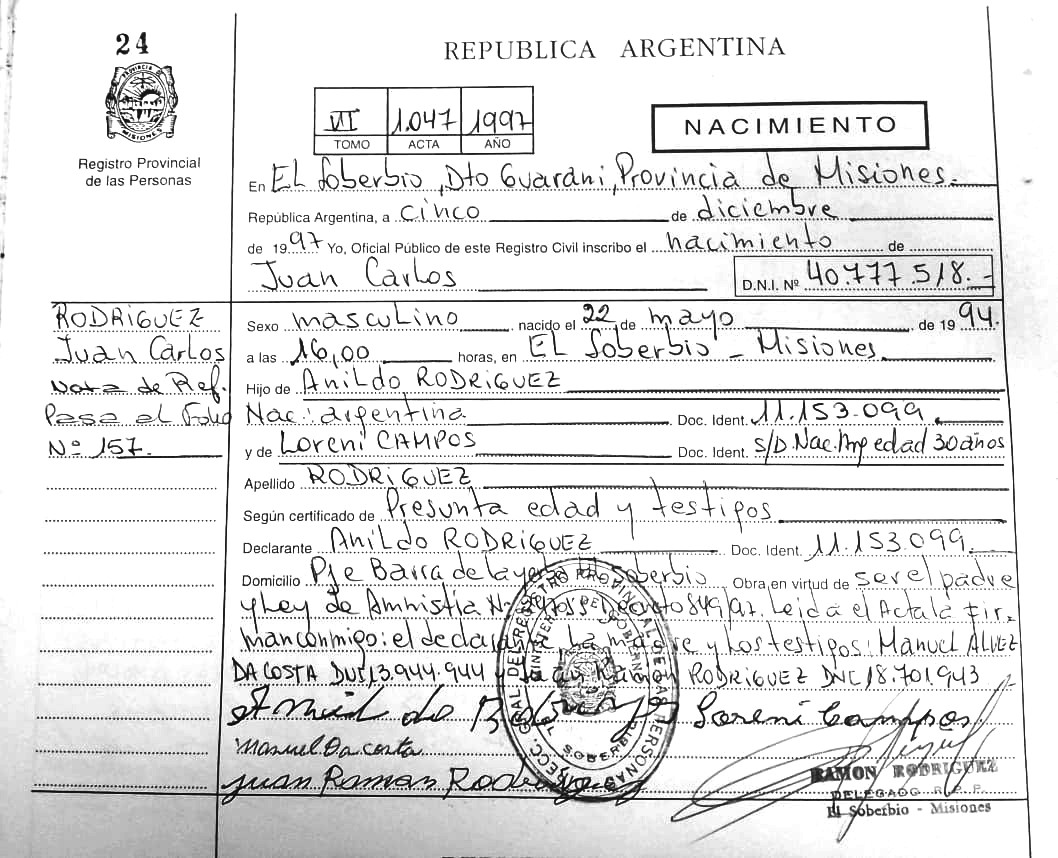 24
REPUBLICA ARGENTINA
PROVINCIA DE MISIONES
Registro Provincial
de las Personas
VI 1.047 1997
TOMO ACTA AÑO
NACIMIENTO
En EL Soberbio, Dto Guarani, Provincia de Misiones.
República Argentina, a cinco de diciembre
de 1997 Yo, Oficial Público de este Registro Civil inscribo el nacimiento de
Juan Carlos D.N.I. Nº 40.777.518.-
RODRIGUEZ
Juan Carlos
Nota de Ref.
Pasa al Folio
Nº 157.
Sexo masculino nacido el 22 de mayo de 1994.
a las 16,00 horas, en EL Soberbio - Misiones
Hijo de Anildo RODRIGUEZ
Nac: argentina Doc. Ident. 11.153.099
y de Loreni CAMPOS Doc. Ident. S/D. Nac. edad 30 años
Apellido RODRIGUEZ
Según certificado de Presunta edad y testigos
Declarante Anildo RODRIGUEZ Doc. Ident. 11.153.099.
Domicilio Pje Barra de El Soberbio Obra, en virtud de ser el padre
y Ley de Amnistia Nº 24755 Decreto 849/97. Leida el Acta la fir-
man conmigo: el declarante, La madre y Los testigos: Manuel ALVEZ
DA COSTA DNI 13.944.944 y Juan Ramon RODRIGUEZ DNI 18.701.943
Anildo Rodriguez Loreni Campos
Manuel Da costa
Juan Raman Rodriguez
RAMON RODRIGUEZ
DELEGADO R.P.P.
El Soberbio - Misiones